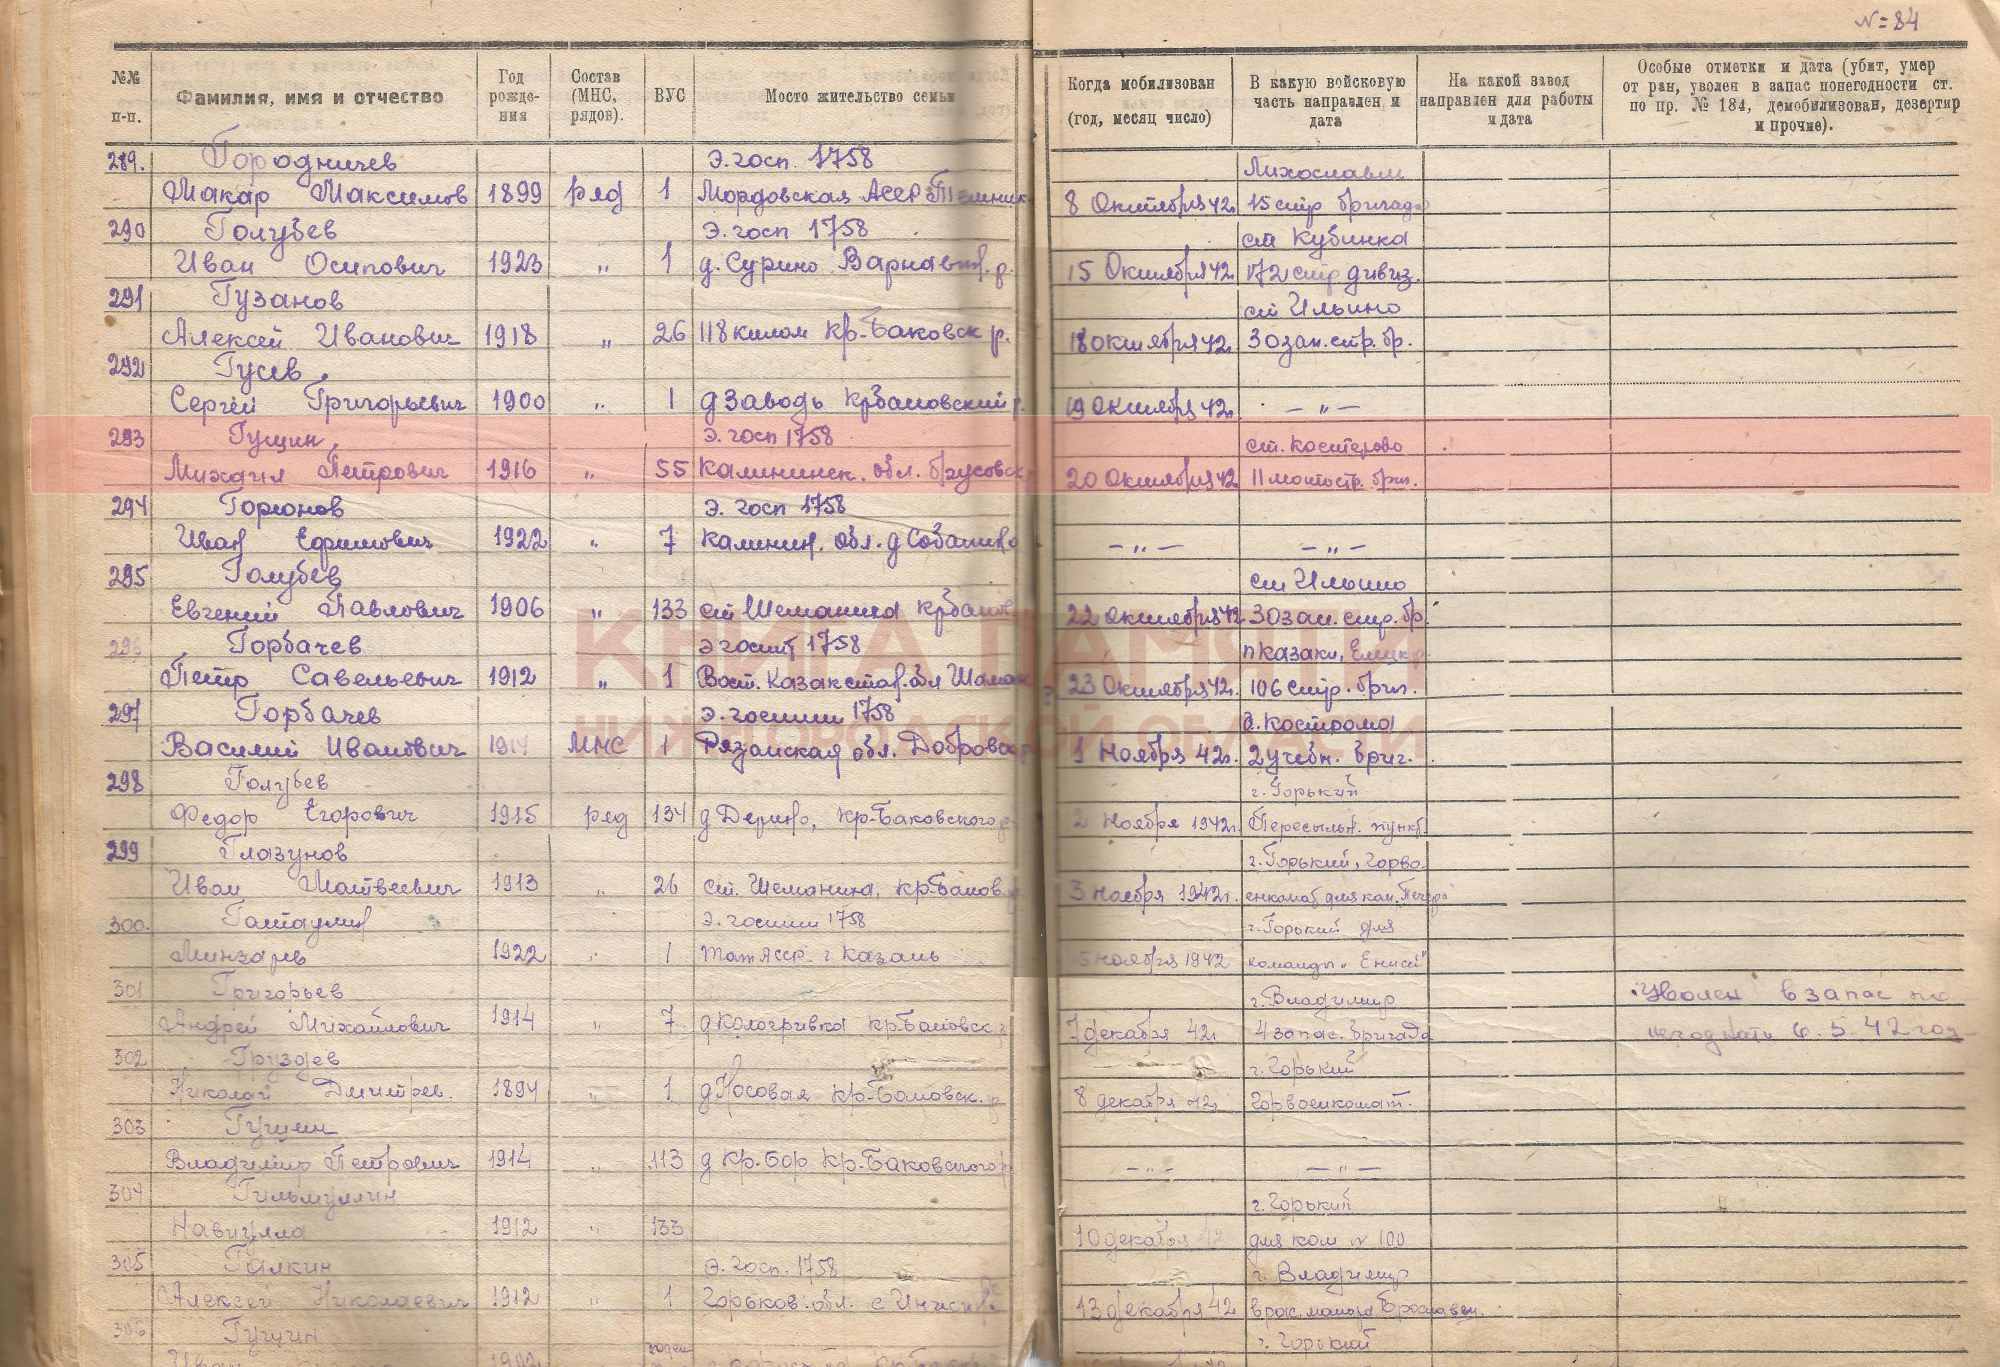 N=84
№№ п-п.
Фамилия, имя и отчество
Год рожде- ния
Состав (МНС, рядов).
ВУС
Мосто жительство семьи
Когда мобилизован (год, месяц число)
В какую войсковую часть направлен и дата
На какой завод направлен для работы и дата
Особые отметки и дата (убит, умер от ран, уволен в запас понегодности ст. по пр. № 184, демобилизован, дезертир и прочие).
289. Городничев Э. госп. 1758 Лихославль
Макар Максимов 1899 ряд 1 Мордовская АССР 8 Октября 42г. 15 стр бригада
290 Голубев Э. госп 1758 ст Кубинка
Иван Осипович 1923 „ 1 д. Сурино Варнавин. р. 15 Октября 42 172 стр дивиз.
291 Гузанов ст Ильино
Алексей Иванович 1918 „ 26 118 килом Кр-Баковск р. 18 октября 42г. 30 зап. стр. бр.
292 Гусев
Сергей Григорьевич 1900 „ 1 д Заводь Крбаковский р. 19 Октября 42г. — „ —
293 Гущин Э. госп 1758 ст. Костерево
Михаил Петрович 1916 „ 55 Калининск. обл. 20 Октября 42 11 мотостр. бриг.
294 Горюнов Э. госп 1758
Иван Ефимович 1922 „ 7 Калинин. обл. д — „ — — „ —
295 Голубев ст Ильино
Евгений Павлович 1906 „ 133 ст Шеманиха Крбаков 22 октября 42 30 зап. стр. бр.
296 Горбачев Э госпит 1758 п Казаки, Елецк р.
Петр Савельевич 1912 „ 1 Вост. Казахстан. обл 23 Октября 42г. 106 стр. бриг.
КНИГА ПАМЯТИ
НИЖЕГОРОДСКОЙ ОБЛАСТИ
297 Горбачев Э. госпит 1758 г. Кострома
Василий Иванович 1914 МНС 1 Рязанская обл. 1 Ноября 42г. 2 учебн. бриг.
298 Голубев г. Горький
Федор Егорович 1915 ряд 134 д Дерино, Кр-Баковского р. 2 Ноября 1942г. Пересыльн. пункт
299 Глазунов г. Горький, Горво-
Иван Матвеевич 1913 „ 26 ст. Шеманиха, Кр-Баков. р. 3 Ноября 1942г. енкомат для ком.
300. Э. госпит 1758 г. Горький для
1922 „ 1 Тат АССР г Казань 5 ноября 1942 команды „Енисей"
301 Григорьев г. Владимир Уволен в запас по
Андрей Михайлович 1914 „ 7 д Кологривка Кр-Баковск. р. 7 декабря 42г. 4 запас. бригада 6.5.42 год
302 Груздев г. Горький
Николай Дмитрев. 1894 „ 1 д Носовая Кр-Баковск. р 8 декабря 42г. Горвоенкомат.
303 Гущин
Владимир Петрович 1914 „ 113 д Кр. Бор Кр. Баковского р — „ — — „ —
304 Гильмуллин г. Горький
1912 „ 133 10 декабря 42 для ком N 100
305 Галкин Э. госп. 1758 г. Владимир
Алексей Николаевич 1912 „ 1 Горьков. обл. с 13 декабря 42
306 Гущин г. Горький
Иван